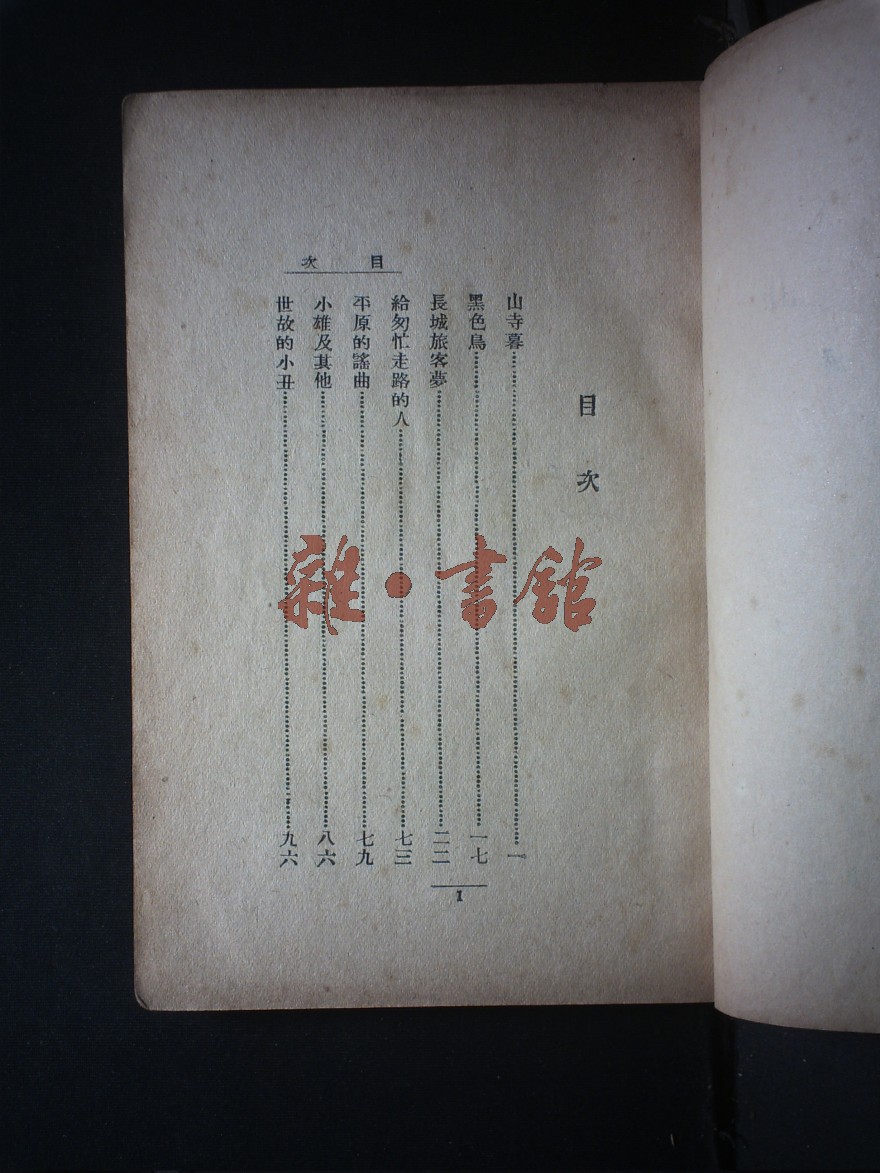 目次
山寺暮……一
黑色鳥……一七
長城旅客夢……二二
給匆忙走路的人……七三
平原的謠曲……七九
小雄及其他……八六
世故的小丑……九六
目次
I
雜·書館